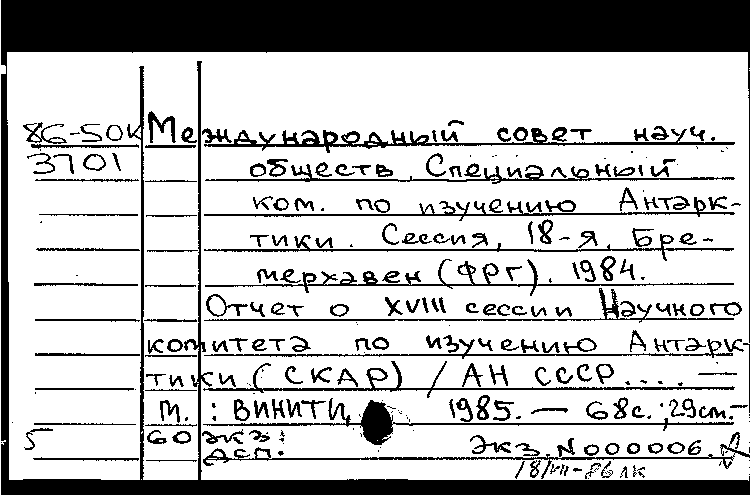 86-50К Международный совет науч.
3701 обществ. Специальный
ком. по изучению Антарк-
тики. Сессия, 18-я. Бре-
мерхавен (ФРГ). 1984.
Отчет о XVIII сессии Научного
комитета по изучению Антарк-
тики (СКАР) / АН СССР.... —
М.: ВИНИТИ, 1985. — 68с.; 29см. —
5 60 экз.:
ДСП. Экз. N000006.
18/VII-86 ЛК